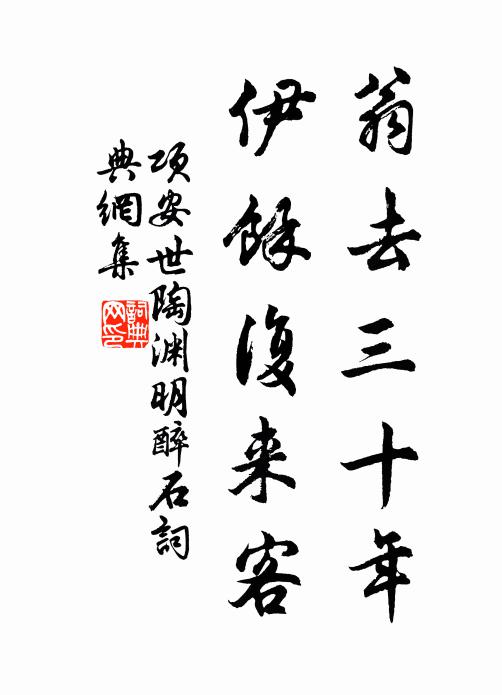 翁去三十年
伊餘復来客
項安世陶渊明醉石詞
典網集
詞典
网印